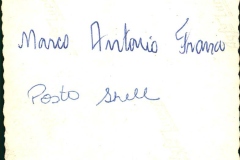 Marco Antonio Franco
Posto Shell